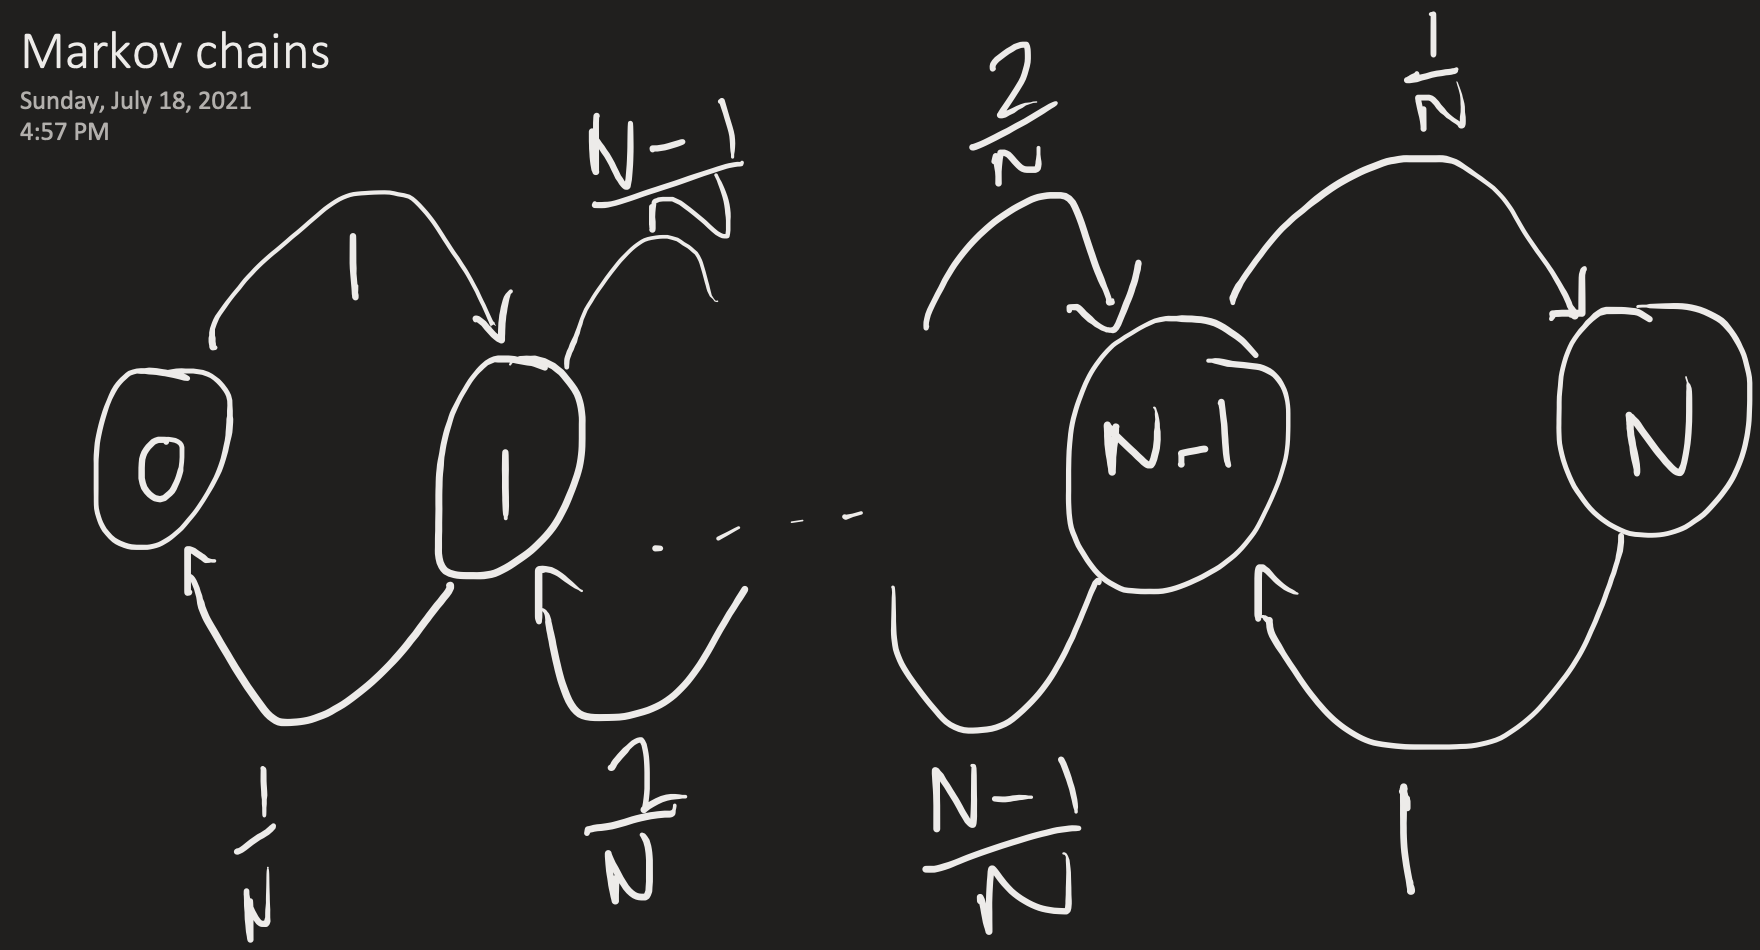 Markov chains
Sunday, July 18, 2021
4:57 PM
1
N-1/N
2/N
1/N
0
1
N-1
N
1/N
2/N
N-1/N
1